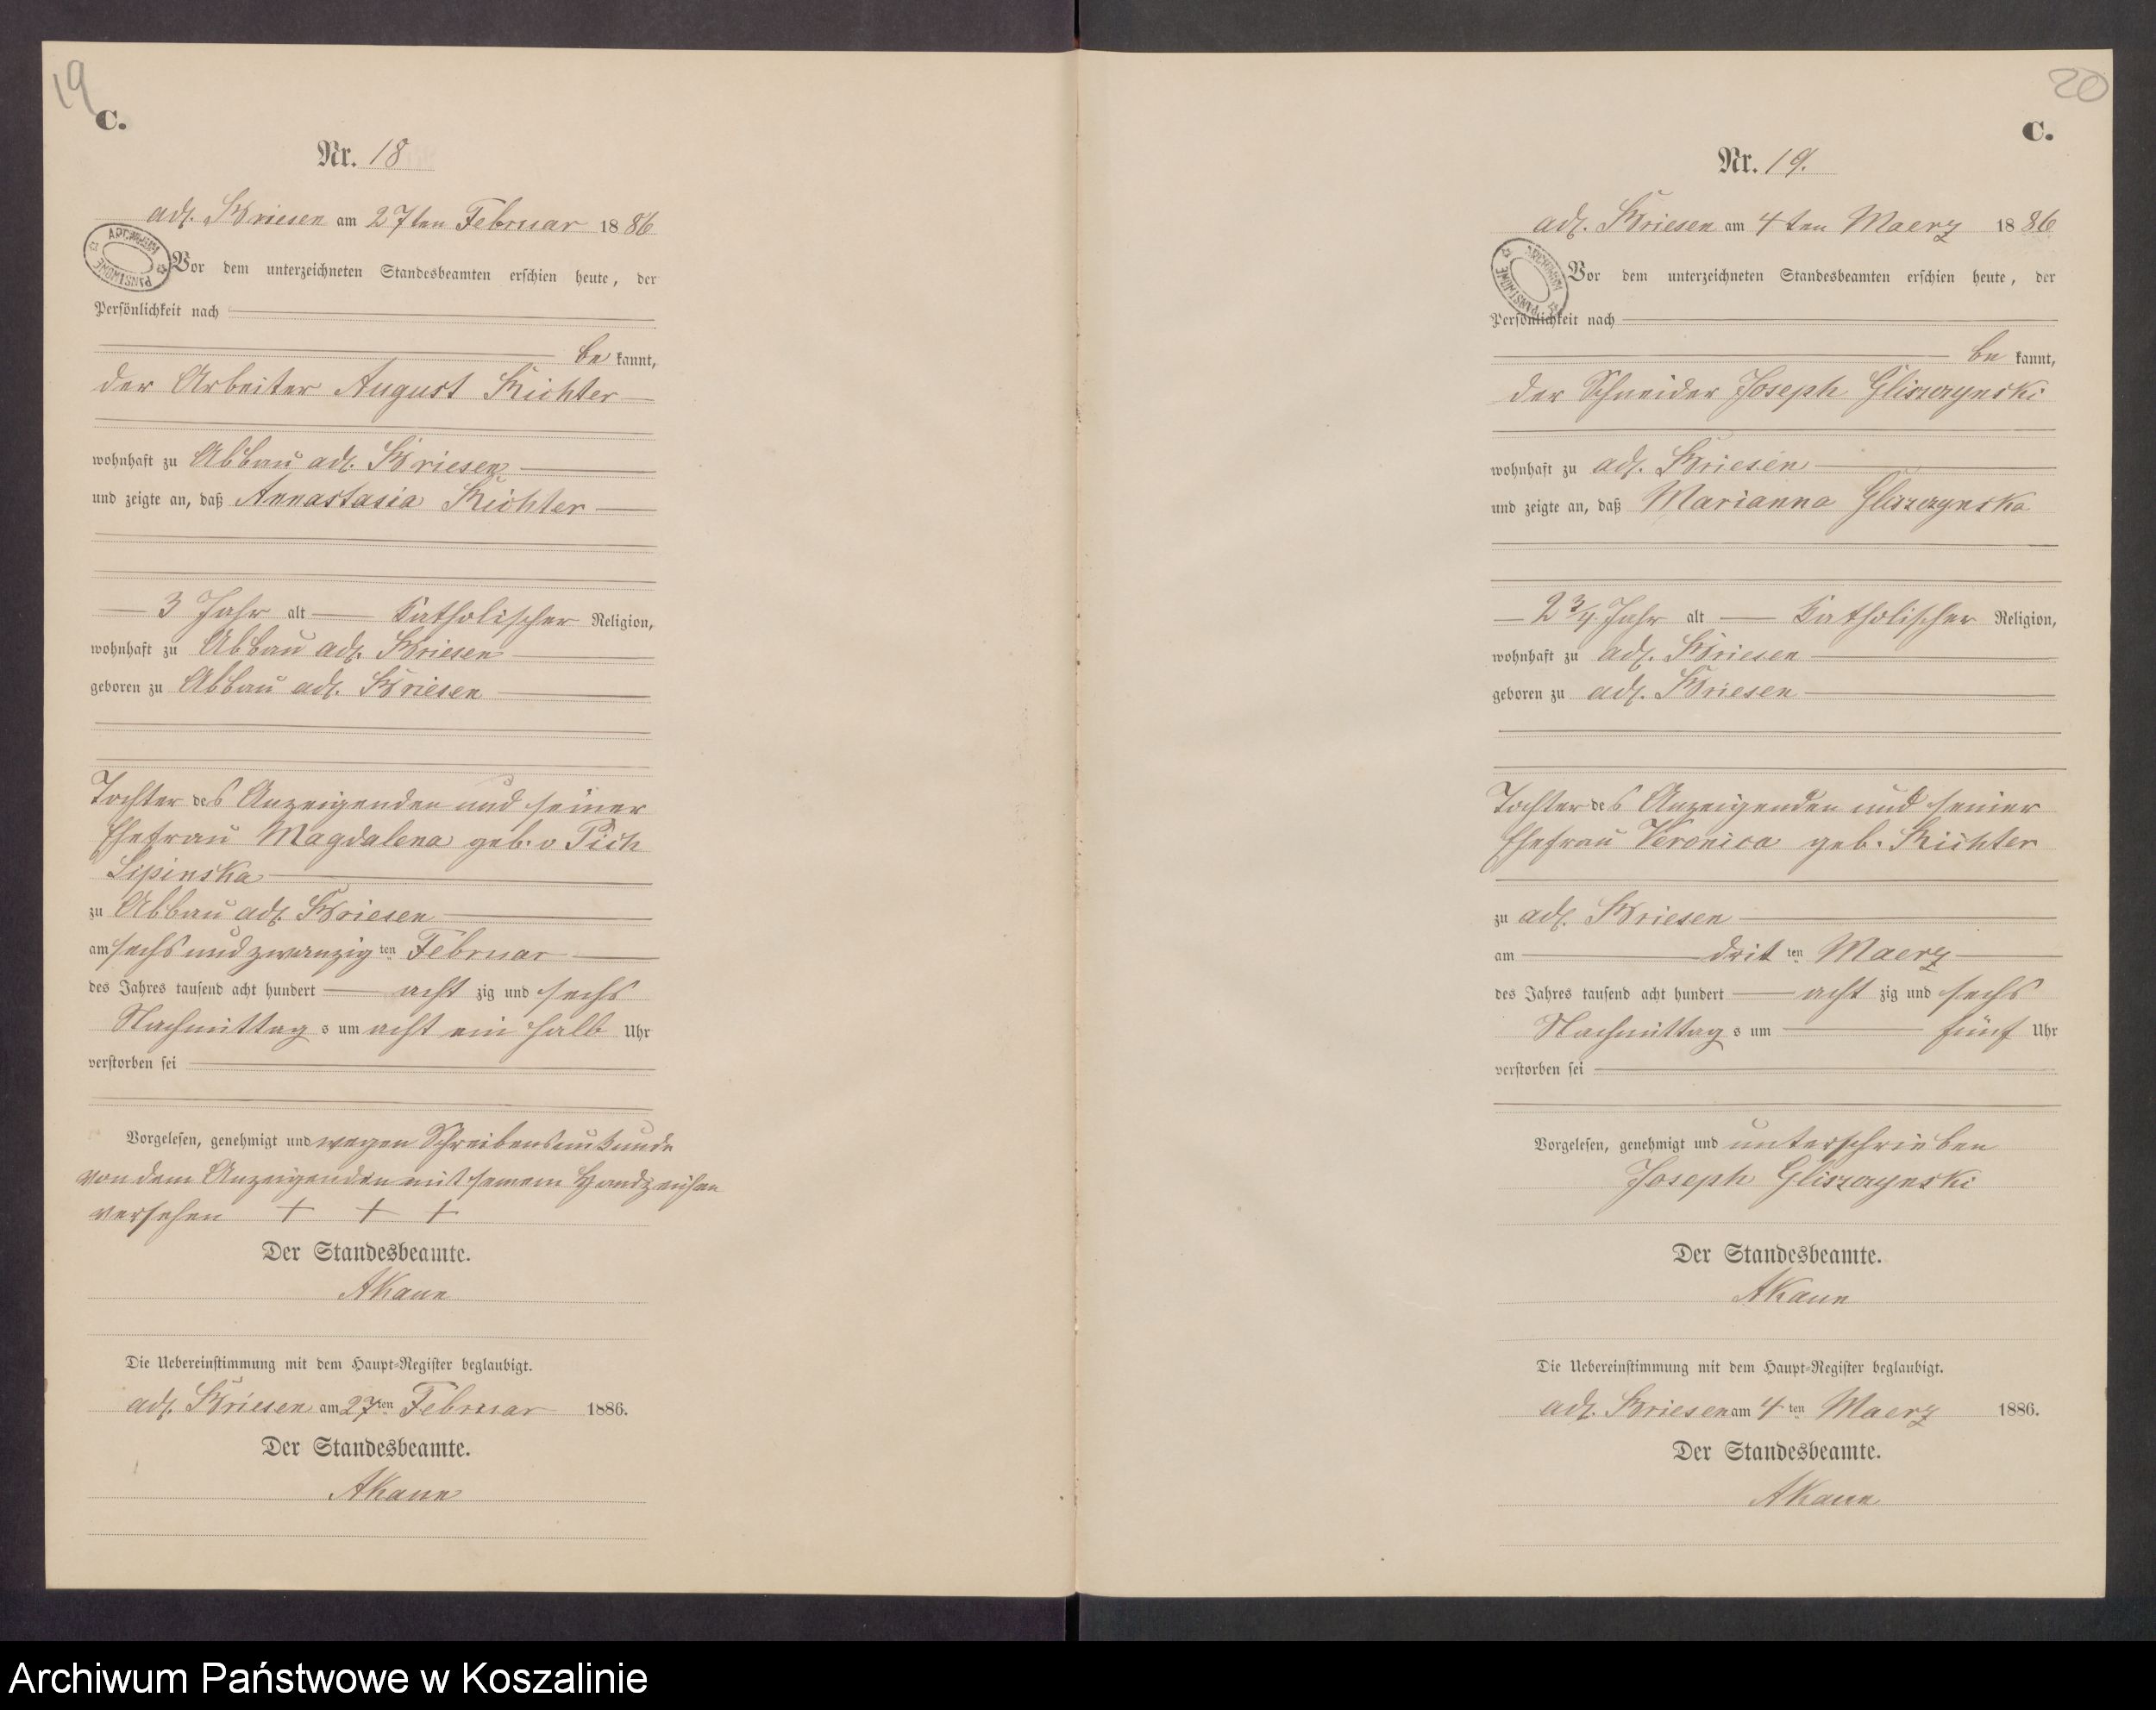 19
C.
Nr. 18
adl. Briesen am 27ten Februar 1886
ARCHIWUM PAŃSTWOWE
Vor dem unterzeichneten Standesbeamten erschien heute, der
Persönlichkeit nach
be kannt,
der Arbeiter August Richter
wohnhaft zu Abbau adl. Briesen
und zeigte an, daß Annastasia Richter
3 Jahr alt Katholischer Religion,
wohnhaft zu Abbau adl. Briesen
geboren zu Abbau adl. Briesen
Tochter des Anzeigenden und seiner
Ehefrau Magdalena geb. v Pich
Lipinska
zu Abbau adl. Briesen
am sechs und zwanzig ten Februar
des Jahres tausend acht hundert acht zig und sechs
Nachmittag s um acht ein halb Uhr
verstorben sei
Vorgelesen, genehmigt und wegen Schreibensunkunde
von dem Anzeigenden mit seinem Handzeichen
versehen + + +
Der Standesbeamte.
AKaun
Die Uebereinstimmung mit dem Haupt-Register beglaubigt.
adl. Briesen am 27ten Februar 1886.
Der Standesbeamte.
AKaun
20
C.
Nr. 19.
adl. Briesen am 4ten Maerz 1886
ARCHIWUM PAŃSTWOWE
Vor dem unterzeichneten Standesbeamten erschien heute, der
Persönlichkeit nach
be kannt,
der Schneider Joseph Gliszczynski
wohnhaft zu adl. Briesen
und zeigte an, daß Marianna Gliszczynska
2 3/4 Jahr alt Katholischer Religion,
wohnhaft zu adl. Briesen
geboren zu adl. Briesen
Tochter des Anzeigenden und seiner
Ehefrau Veronica geb. Richter
zu adl. Briesen
am drit ten Maerz
des Jahres tausend acht hundert acht zig und sechs
Nachmittag s um fünf Uhr
verstorben sei
Vorgelesen, genehmigt und unterschrieben
Joseph Gliszczynski
Der Standesbeamte.
AKaun
Die Uebereinstimmung mit dem Haupt-Register beglaubigt.
adl. Briesen am 4ten Maerz 1886.
Der Standesbeamte.
AKaun
Archiwum Państwowe w Koszalinie